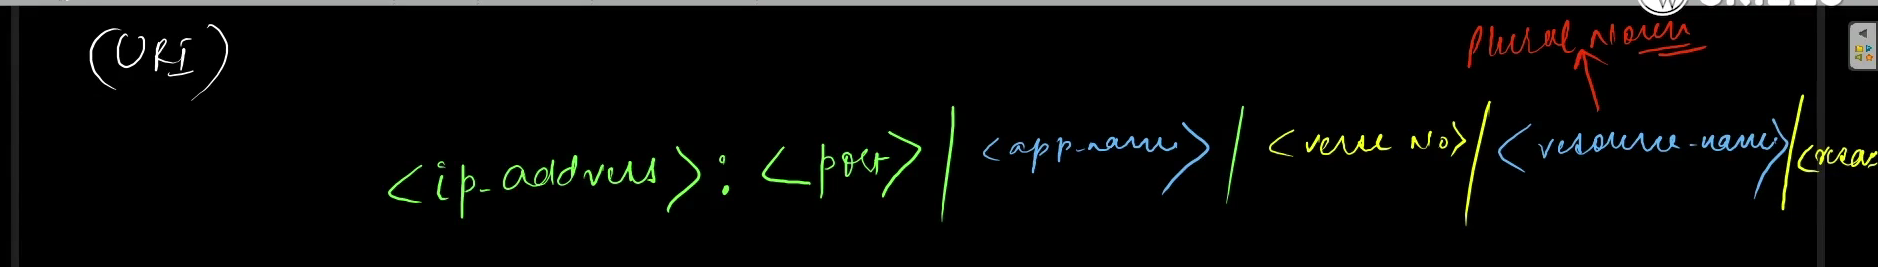 (URI)
plural noun
<ip-address>:<port>/<app-name>/<verse No>/<resource-name>/<resou